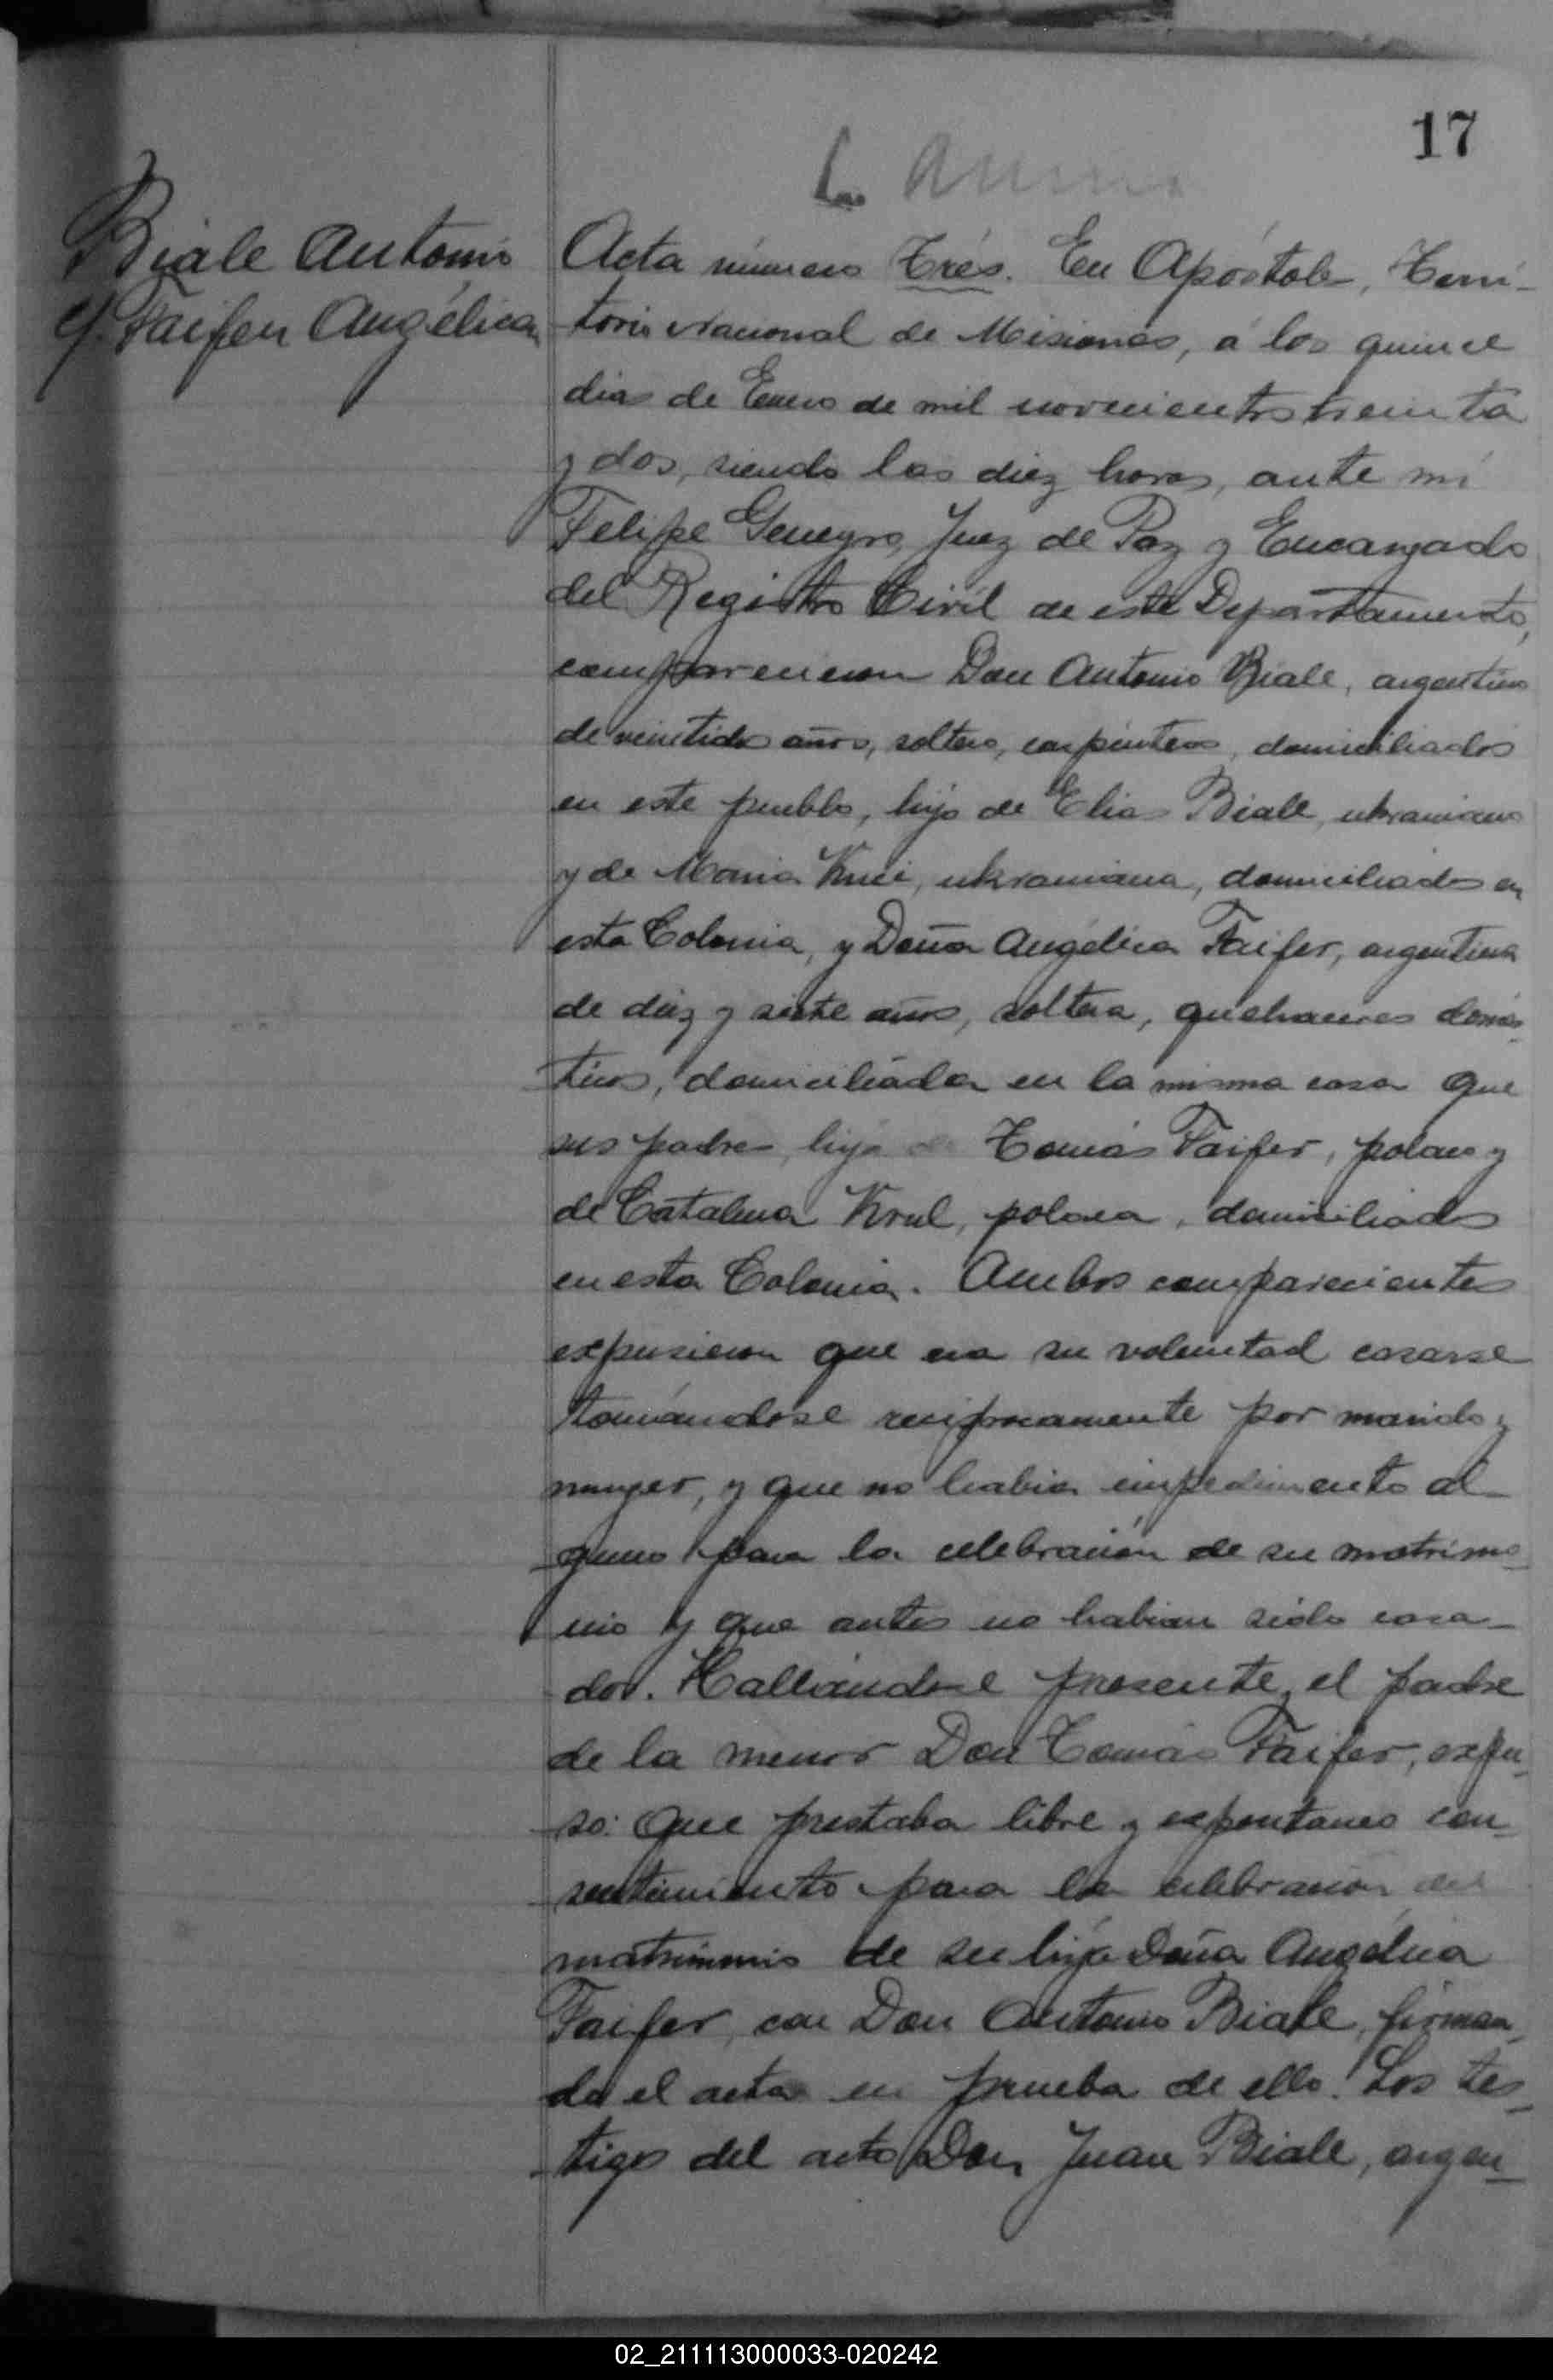 17
Biale Antonio
c/. Faifer Angélica
Acta número Trés. En Apóstoles, Terri-
torio Nacional de Misiones, á los quince
dias de Enero de mil novecientos treinta
y dos, siendo las diez horas, ante mí
Felipe Geneyro, Juez de Paz y Encargado
del Registro Civil de este Departamento,
comparecieron Don Antonio Biale, argentino
de veintidos años, soltero, carpintero, domiciliados
en este pueblo, hijo de Elias Biale, ukraniano
y de Maria, ukraniana, domiciliados en
esta Colonia, y Doña Angélica Faifer, argentina
de diez y siete años, soltera, quehaceres domés-
ticos, domiciliada en la misma casa que
sus padres, hija de Tomás Faifer, polaco y
de Catalina Krul, polaca, domiciliados
en esta Colonia. Ambos comparecientes
expusieron que era su voluntad casarse
tomándose reciprocamente por marido y
muger, y que no habia impedimento al-
guno para la celebración de su matrimo-
nio y que antes no habian sido casa-
dos. Hallándose presente, el padre
de la menor Don Tomás Faifer, expu-
so: Que prestaba libre y expontaneo con-
sentimiento para la celebración del
matrimonio de su hija Doña Angélica
Faifer, con Don Antonio Biale, firman-
do el acta en prueba de ello. Los tes-
tigos del acto Don Juan Biale, argen-
02_211113000033-020242